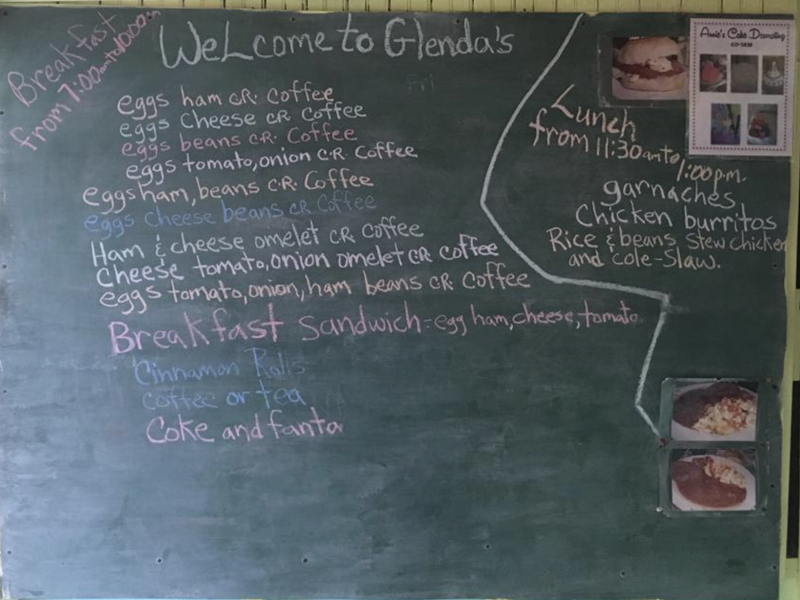 Welcome to Glenda's
Breakfast
from 7:00am to 10:00am
eggs ham C.R. Coffee
eggs Cheese C.R. Coffee
eggs beans C.R. Coffee
eggs tomato, onion C.R. Coffee
eggs ham, beans C.R. Coffee
eggs cheese beans C.R. Coffee
Ham & cheese omelet C.R. Coffee
Cheese tomato, onion omelet C.R. Coffee
eggs tomato, onion, ham beans C.R. Coffee
Breakfast Sandwich - egg ham, cheese, tomato
Cinnamon Rolls
coffee or tea
Coke and fanta
Lunch
from 11:30am to 1:00p.m.
garnaches
Chicken burritos
Rice & beans stew chicken
and cole-slaw.
Cake Decorating